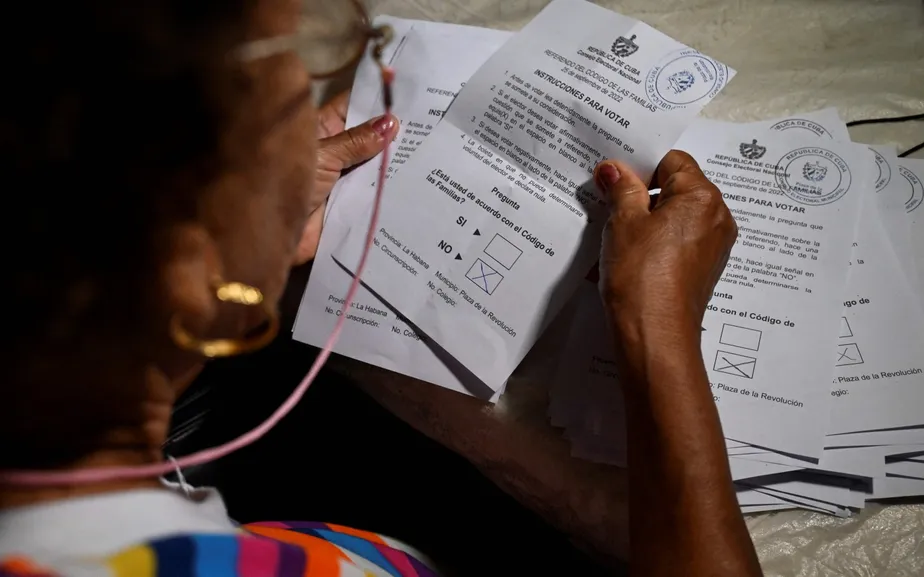 REPÚBLICA DE CUBA
Consejo Electoral Nacional
REFERENDO DEL CÓDIGO DE LAS FAMILIAS
25 de septiembre de 2022
INSTRUCCIONES PARA VOTAR
1. Antes de votar lea detenidamente la pregunta que
se somete a su consideración.
2. Si el elector desea votar afirmativamente
cuestión que se somete a referendo,
equis) en el espacio en blanco al lado de la
palabra "SI".
3. Si desea votar negativamente, hace igual
el espacio en blanco al lado de la palabra "NO".
4. La boleta en que no pueda determinarse la
voluntad del elector se declara nula.
Pregunta
¿Está usted de acuerdo con el Código de
las Familias?
SI
NO
Provincia: La Habana Municipio: Plaza de la Revolución
No. Circunscripción: No. Colegio:
REFEREN
Antes de
se some
Si el
Provincia: La Habana
No. Circunscripción:
REPÚBLICA DE CUBA
Consejo Electoral Nacional
DEL CÓDIGO DE LAS FAMILIAS
de septiembre de 2022
CCIONES PARA VOTAR
detenidamente la pregunta
afirmativamente sobre la
referendo, hace una
en blanco al lado de la
hace igual señal en
de la palabra "NO".
pueda determinarse la
declara nula.
Pregunta
acuerdo con el Código de
Plaza de la Revolución
Colegio:
REPÚBLICA DE CUBA
ELECTORAL MUNICIPAL
REPÚBLICA DE CUBA
Plaza de la Revolución